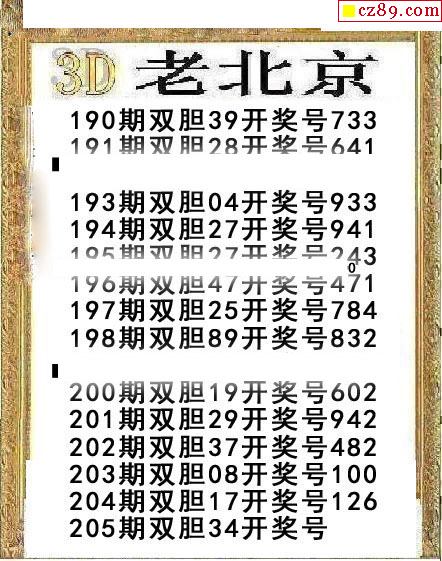 cz89.com
3D 老北京
190期双胆39开奖号733
191期双胆28开奖号641
193期双胆04开奖号933
194期双胆27开奖号941
195期双胆27开奖号243
0
196期双胆47开奖号471
197期双胆25开奖号784
198期双胆89开奖号832
200期双胆19开奖号602
201期双胆29开奖号942
202期双胆37开奖号482
203期双胆08开奖号100
204期双胆17开奖号126
205期双胆34开奖号